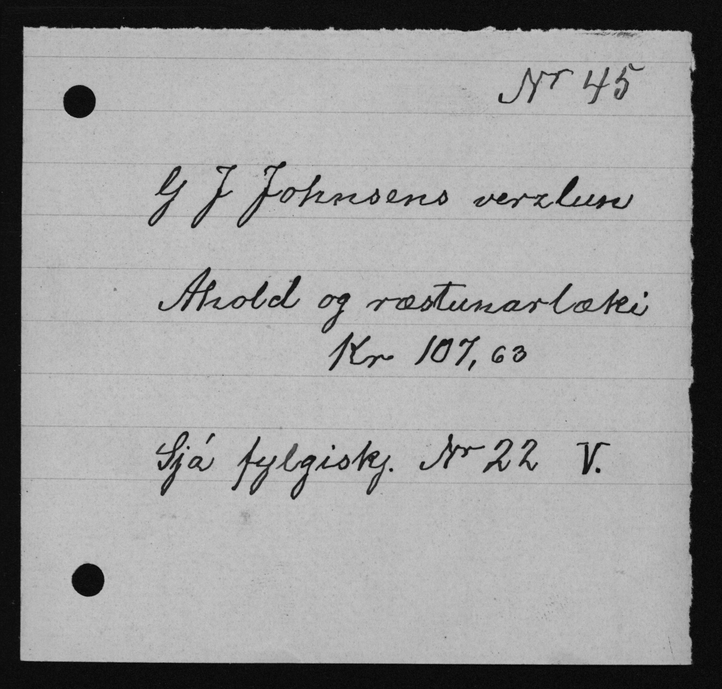 Nr 45
G J Johnsens verzlun
Ahold og ræstunarlæki
Kr 107,63
Sjá fylgiskj. Nr 22 V.